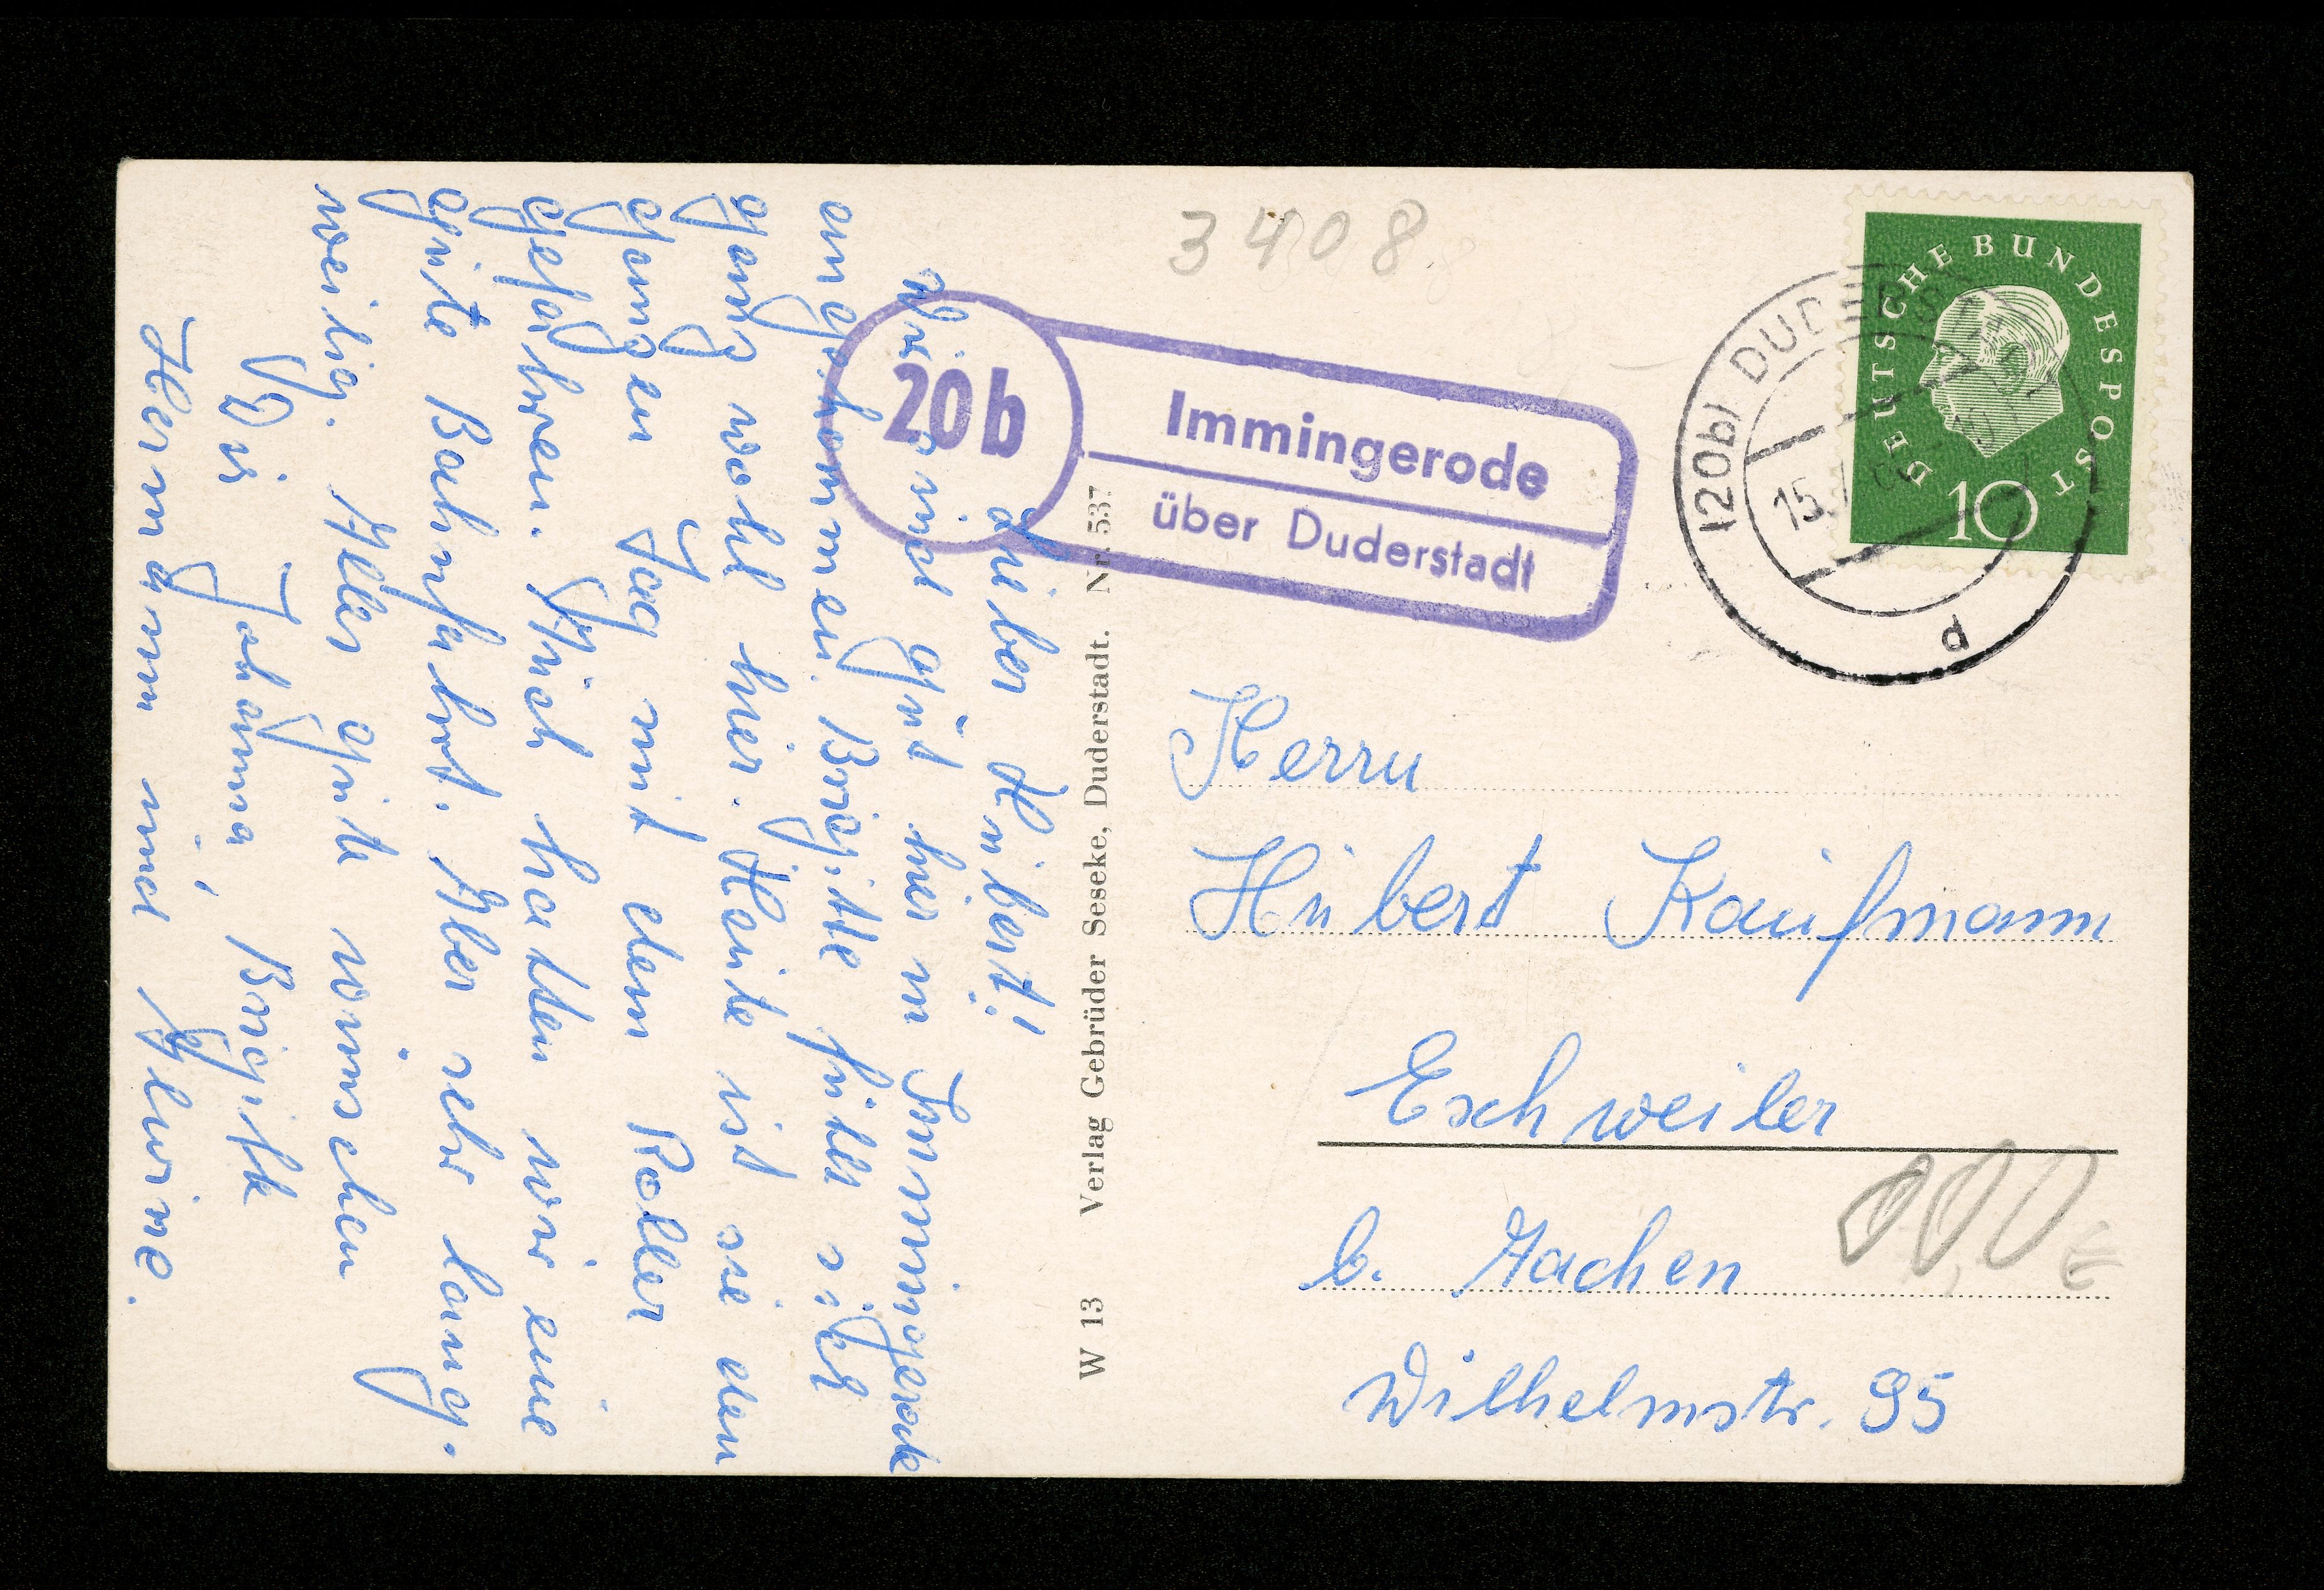 Lieber Hubert!
Wir sind gut hier in Immingerode
angekommen. Brigitte fühlt sich
ganz wohl hier. Heute ist sie den
ganzen Tag mit dem Roller
gefahren. Auch hatten wir eine
gute Bahnfahrt. Aber sehr lang-
weilig. Alles gute wünschen
Dir Johanna, Brigitte
Hermann und Alwine.
W 13 Verlag Gebrüder Seseke, Duderstadt. Nr. 537
3408
20b
Immingerode
über Duderstadt
DEUTSCHE BUNDESPOST
10
(20b) DUDERSTADT
15.
d
Herrn
Hubert Kaufmann
Eschweiler
b. Aachen
Wilhelmstr. 95